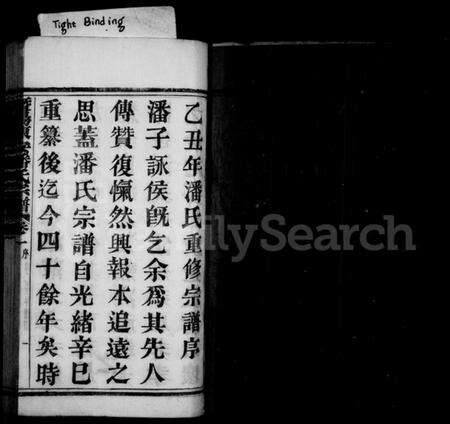 Tight Binding
乙丑年潘氏重修宗譜序
潘子詠侯既乞余爲其先人
傳贊復愾然興報本追遠之
思蓋潘氏宗譜自光緒辛巳
重纂後迄今四十餘年矣時
宗譜 卷一 序 一
FamilySearch